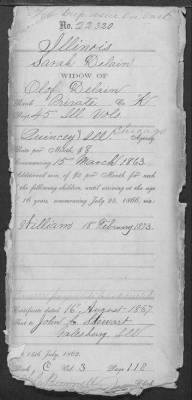 No. 22320
Illinois
Sarah Delain
WIDOW OF
Olof Delain
Rank Private Co. K
Regt 45 Ill Vols
Quincey Ill Chicago Agency
Rate per Month $8
Commencing 15 March 1863.
Additional sum of $2 per Month for each
of the following children, until arriving at the age
of 16 years, commencing July 25, 1866, viz:
William 18 February 1873.
Certificate dated 16 August 1867
Sent to John C. Stewart
Galesburg Ill
14th July, 1862.
Book C Vol. 3 Page 112
Clerk